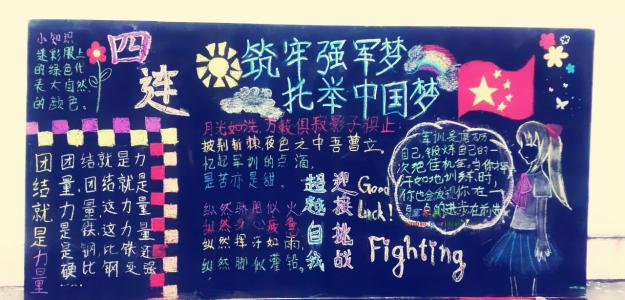 小知识
迷彩服上
的绿色代
表大自然
的颜色。
四
连
筑牢强军梦
托举中国梦
月光如洗,万籁俱寂影子俱止
披荆斩棘夜色之中吾曹立,
忆起军训的点滴,
是苦亦是甜。
纵然骄阳似火
纵然身心疲惫
纵然挥汗如雨,
纵然脚似灌铅。
团结就是力量
团结就是力
量,团结就是
力量,这力量
是铁,这力量
是钢,比铁还
硬,比钢还强
超越自我
迎接挑战
Good
Luck!
Fighting
军训是
自己,锻炼自己的一
次绝佳机会,当你
你也会发现你在一